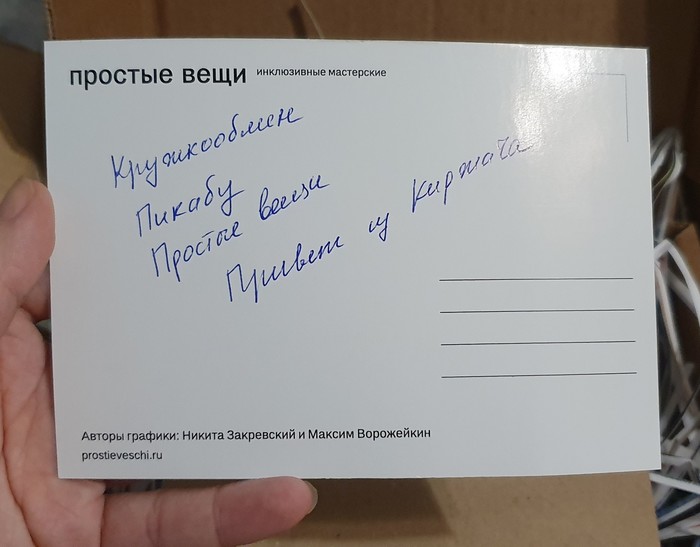 простые вещи инклюзивные мастерские
Кружкообмен
Пикабу
Простые вещи
Привет из Киржача
Авторы графики: Никита Закревский и Максим Ворожейкин
prostieveschi.ru